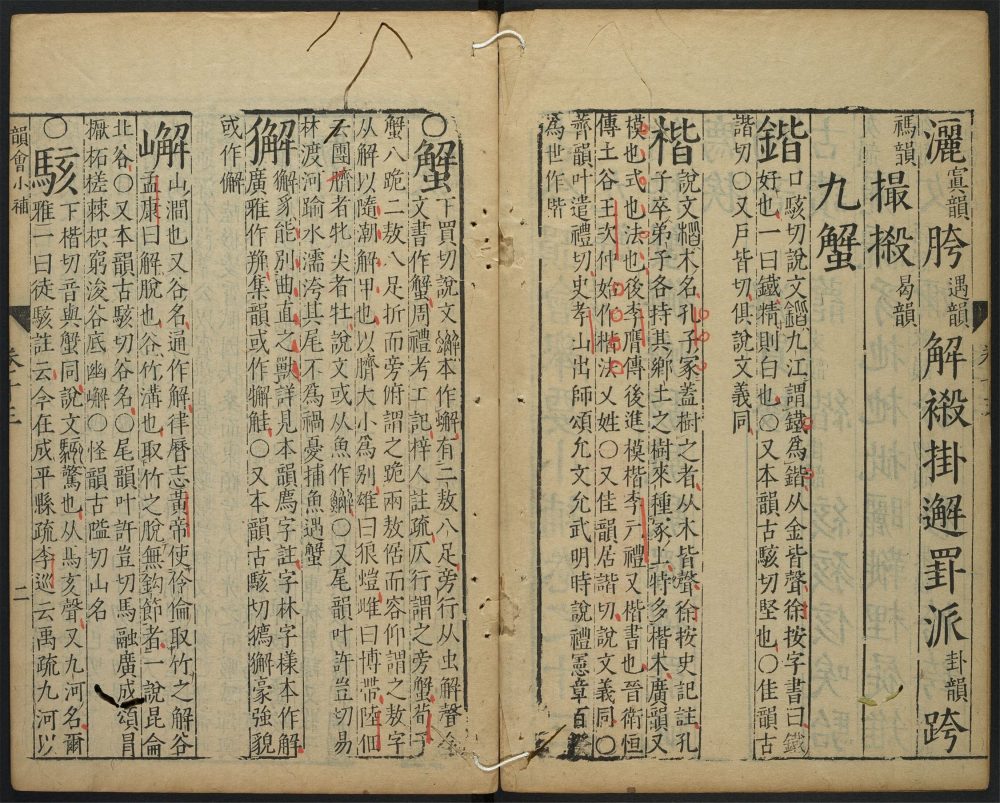 灑寘韻胯遇韻解褹掛邂罫派卦韻跨
禡韻撮摋曷韻
九蟹
鍇口駭切說文鍇九江謂鐵爲鍇从金皆聲徐按字書曰鐵
好也一曰鐵精則白也〇又本韻古駭切堅也〇佳韻古
諧切〇又戶皆切俱說文義同
楷說文楷木名孔子冢蓋樹之者从木皆聲徐按史記註孔
子卒弟子各持其鄉土之樹來種冢土特多楷木廣韻又
模也式也法也後李膺傳後進模楷李元禮又楷書也晉衛恒
傳土谷王次仲始作楷法又姓〇又佳韻居諧切說文義同〇
薺韻叶遣禮切史孝山出師頌允文允武明時說禮憲章百
爲世作喈
〇蟹下買切說文本作蠏有二敖八足旁行从虫解聲今
文書作蟹周禮考工記梓人註疏仄行謂之旁蟹荀子
蟹八跪二敖八足折而旁俯謂之跪兩敖倨而容仰謂之敖字
从解以隨潮解甲也以臍大小爲別雄曰狼螘雌曰博帶陸佃
云團臍者牝尖者牡說文或从魚作〇又尾韻叶許豈切易
林渡河踰水濡洿其尾不爲禍憂捕魚遇蟹
獬獬豸能別曲直之獸詳見本韻廌字註字林字樣本作解
廣雅作㺊集韻或作獬觟〇又本韻古駭切獬豪強貌
或作懈
嶰山澗也又谷名通作解律曆志黃帝使伶倫取竹之解谷
孟康曰解脫也谷竹溝也取竹之脫無鈎節者一說昆侖
北谷〇又本韻古駭切谷名〇尾韻叶許豈切馬融廣成頌冒
橛柘槎棘枳窮浚谷底幽嶰〇怪韻古隘切山名
〇駭下楷切音與蟹同說文驚也从馬亥聲又九河名爾
雅二曰徒駭註云今在成平縣疏李巡云禹疏九河以
韻會小補
卷十三
二